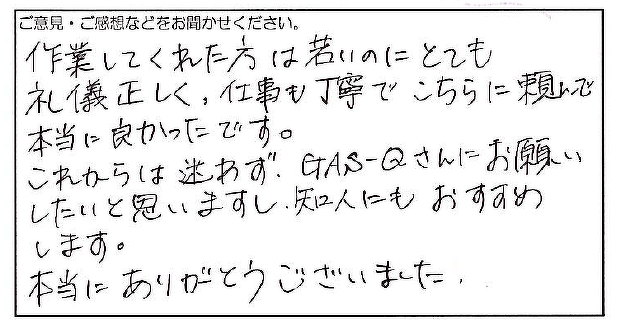 ご意見・ご感想などをお聞かせください。
作業してくれた方は若いのにとても
礼儀正しく、仕事も丁寧でこちらに頼んで
本当に良かったです。
これからは迷わず、GAS-Qさんにお願い
したいと思いますし、知人にもおすすめ
します。
本当にありがとうございました.